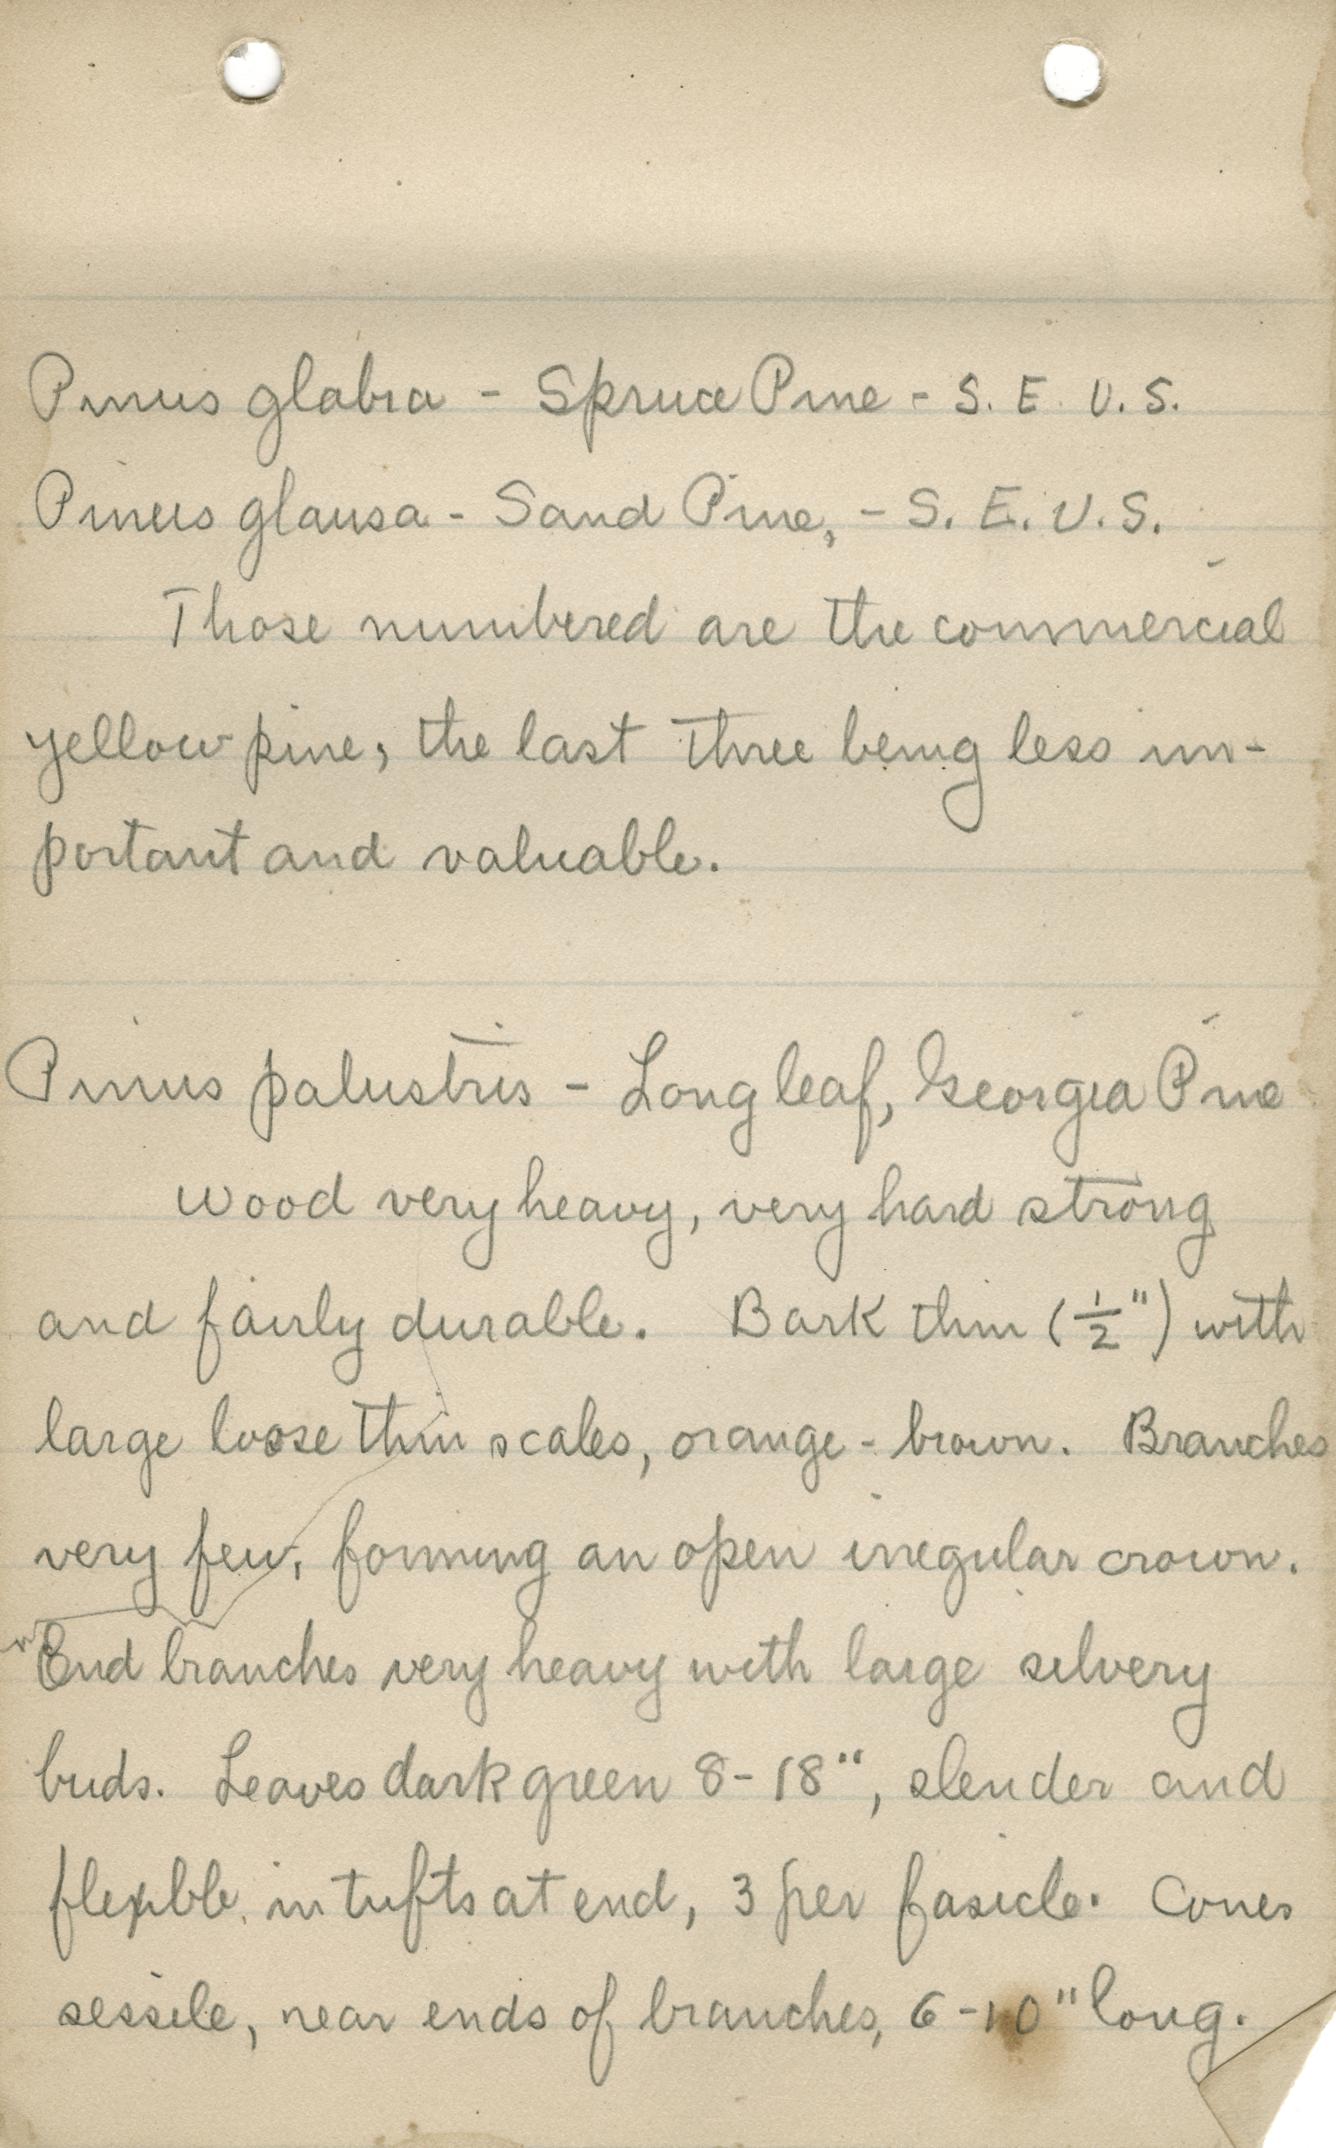 Pinus glabra - Spruce Pine - S. E. U.S.
Pinus glausa - Sand Pine, - S. E. U.S.
Those numbered are the commercial
yellow pine, the last three being less im-
portant and valuable.
Pinus palustris - Longleaf, Georgia Pine
Wood very heavy, very hard strong
and fairly durable. Bark thin (1/2") with
large loose thin scales, orange-brown. Branches
very few, forming an open irregular crown.
End branches very heavy with large silvery
buds. Leaves dark green 8-18", slender and
flexible in tufts at end, 3 per fasicle. Cones
sessile, near ends of branches, 6-10" long.